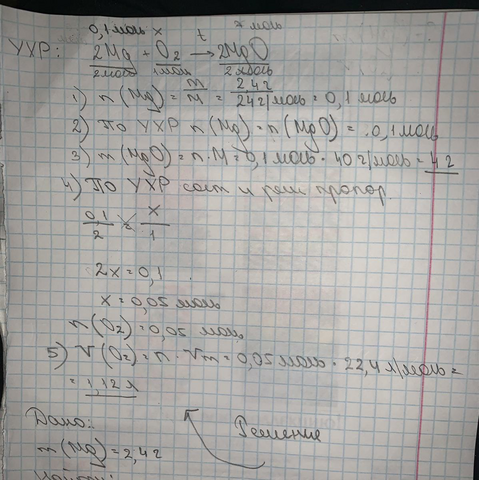 0,1 моль x ? моль
УХР: 2Mg + O2 t→ 2MgO
2 моль 1 моль 2 моль
1) n(Mg) = m/M = 2,4 г / 24 г/моль = 0,1 моль
2) По УХР n(Mg) = n(MgO) = 0,1 моль
3) m(MgO) = n · M = 0,1 моль · 40 г/моль = 4 г
4) По УХР сост и реш пропор.
0,1/2 = x/1
2x = 0,1
x = 0,05 моль
n(O2) = 0,05 моль
5) V(O2) = n · Vm = 0,05 моль · 22,4 л/моль =
= 1,12 л
Дано: Решение
m(Mg) = 2,4 г
Найти: